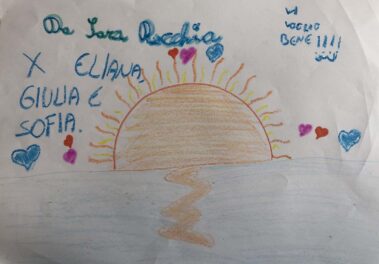 Da Sara Recchia
VI
VOGLIO
BENE !!!!
X ELIANA,
GIULIA E
SOFIA.